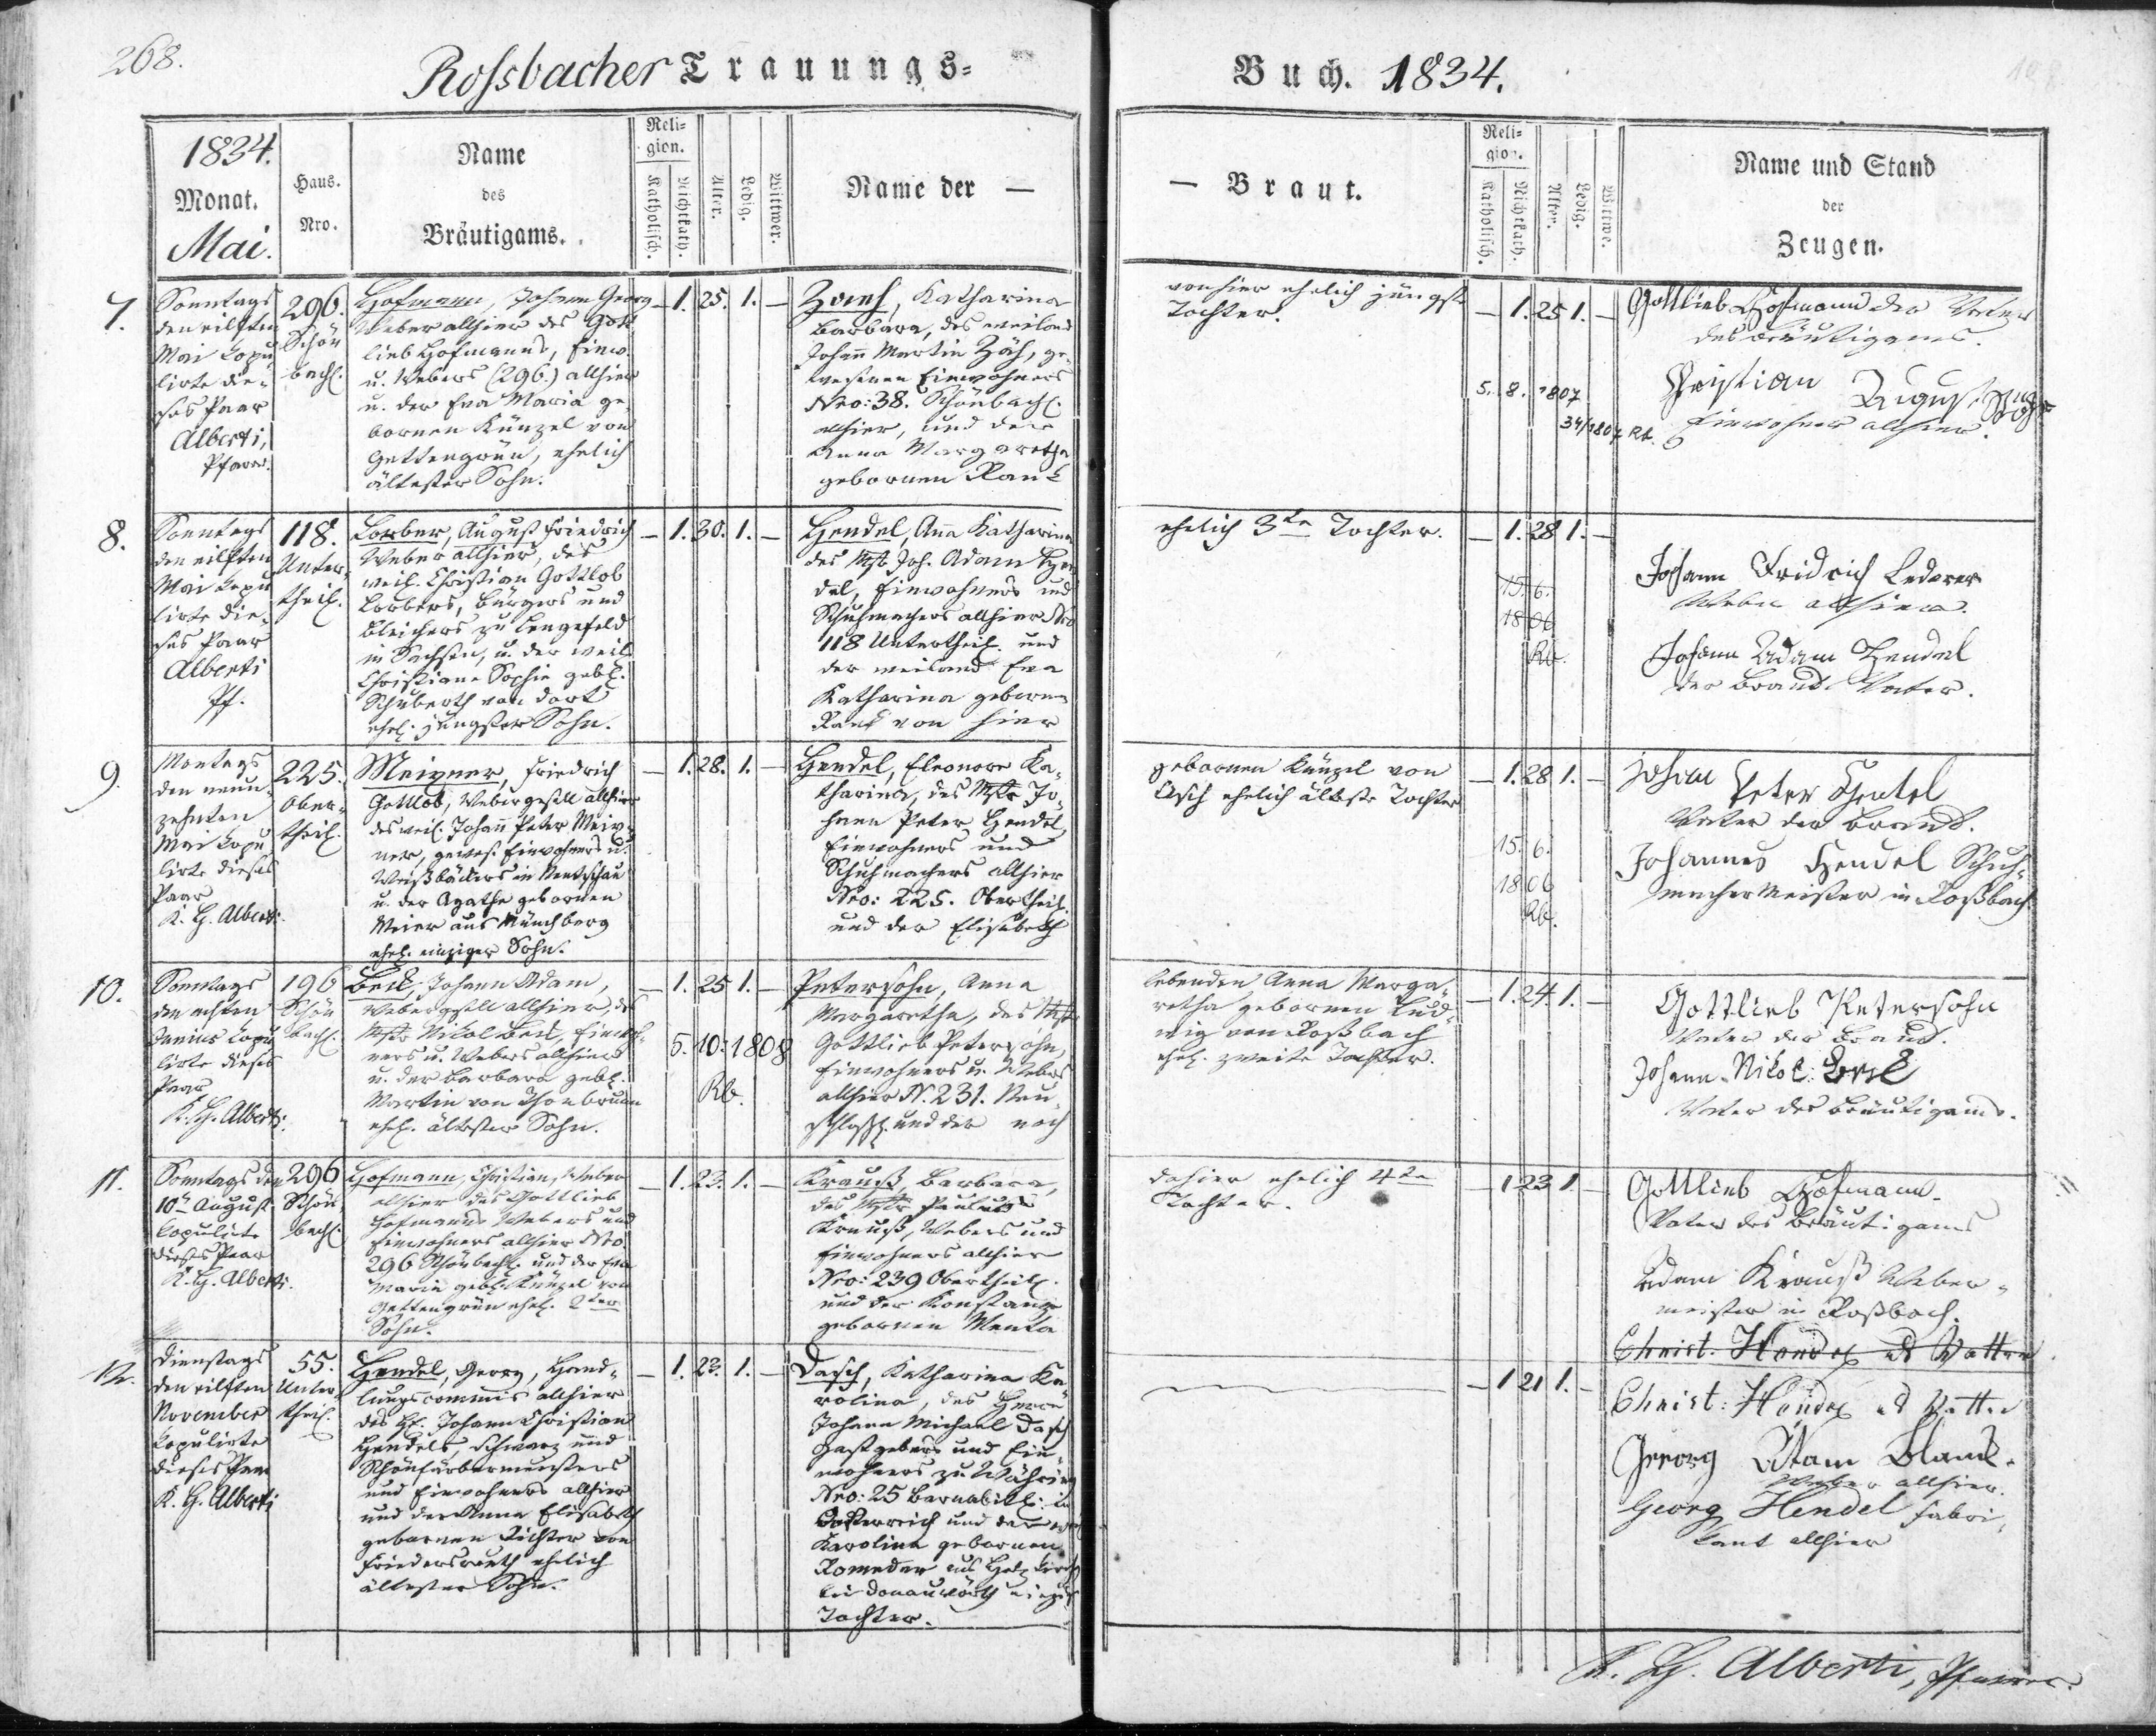 268.
Rossbacher Trauungs-
Buch. 1834.
1834.
Monat.
Mai.
Haus-
Nro.
Name
des
Bräutigams.
Reli-
gion.
Katholisch.
Nichtkath.
Alter.
Ledig.
Wittwer.
Name der —
— Braut.
Reli-
gion.
Katholisch.
Nichtkath.
Alter.
Ledig.
Wittwe.
Name und Stand
der
Zeugen.
7.
Sonntags
den eilften
Mai kopu
lirte die-
ses Paar
Alberti,
Pfarr.
296.
Schön
bach.
Hofmann, Johann Georg
Weber allhier des Gott
lieb Hofmanns, Einw.
u. Webers (296.) allhier
u. der Eva Maria ge-
bornen Künzel von
Gettengrün, ehelich
ältester Sohn.
— 1. 25. 1. —
Katharina
Barbara, des weiland
Johann Martin Zäh, ge-
wesenen Einwohners
Nro: 38. Schönbach
allhier, und der
Anna Margaretha
gebornen Rank
von hier ehelich jüngste
Tochter.
— 1. 25 1. —
5. 8. 1807
34/1807 Rb.
Gottlieb Hofmann der Vater
des Bräutigams.
Christian August
Einwohner allhier.
8.
Sonntags
den eilften
Mai kopu
lirte die-
ses Paar
Alberti
Pf.
118.
Unter-
theil.
Lorber, August Friedrich
Weber allhier, des
weil. Christian Gottlob
Lorbers, Bürgers und
Bleichers zu Lengefeld
in Sachsen, u. der weil.
Christiane Sophie geb.
Schuberth von dort
ehel. jüngster Sohn.
— 1. 30. 1. —
Hendel, Ana Katharina
des Mstr Joh. Adam Hen
del, Einwohners und
Schuhmachers allhier Nro
118 Untertheil. und
der weiland Eva
Katharina gebornen
Rank von hier
ehelich 3te Tochter.
— 1. 28 1. —
15. 6.
1806
Rb.
Johann Fridrich Lederer
Weber allhier.
Johann Adam Hendel
der Braut Vater.
9.
Montags
den neun-
zehnten
Mai kopu
lirte dieses
Paar
K. H. Alberti.
225.
Ober-
theil.
Meixner, Friedrich
Gottlob, Webergesell allhier
des weil. Johann Peter Meix-
ner, gewes. Einwohners u.
Weißbäckers in Netzschkau
u. der Agathe gebornen
Meier aus Münchberg
ehel. einziger Sohn.
— 1. 28. 1. —
Hendel, Eleonore Ka-
tharina, des Mstr Jo-
hann Peter Hendel,
Einwohners und
Schuhmachers allhier
Nro: 225. Obertheil.
und der Elisabeth
gebornen Künzel von
Asch ehelich älteste Tochter
— 1. 28 1. —
15. 6.
1806
Rb.
Johan Peter Hentel
Vater der Braut.
Johannes Hendel Schuh-
macher Meister in Roßbach.
10.
Sonntags
den achten
Junius kopu
lirte dieses
Paar
K. H. Alberti.
196
Schön
bach.
Beck, Johann Adam,
Webergesell allhier, des
Mstr Nikol Beck, Einwoh-
ners u. Webers allhier
u. der Barbara geb.
Martin von Thonbrunn
ehel. ältester Sohn.
— 1. 25 1. —
5. 10. 1808
Rb.
Petersohn, Anna
Margaretha, des Mstr
Gottlieb Petersohn,
Einwohners u. Webers
allhier N. 231. Neu-
schloß. und der noch
lebenden Anna Marga-
retha gebornen Lud-
wig von Roßbach
ehel. zweite Tochter.
— 1. 24. 1. —
Gottlieb Petersohn
Vater der Braut.
Johann Nikol: Beck
Vater des Bräutigams.
11.
Sonntags den
10tn August
kopulirte
dieses Paar
K. H. Alberti.
296
Schön-
bach.
Hofmann, Christian, Weber
allhier des Gottlieb
Hofmanns Webers und
Einwohners allhier Nro
296 Schönbach. und der Eva
Maria geb. Künzel von
Gettengrün ehel. 2ter
Sohn.
— 1. 23. 1. —
Krauß, Barbara,
des Mstr Paulus
Krauß, Webers und
Einwohners allhier
Nro: 239 Obertheil.
und der Konstanze
gebornen
dahier ehelich 4te
Tochter.
— 1 23 1. —
Gottlieb Hofmann.
Vater des Bräutigams
Adam Krauß Weber-
meister in Roßbach.
12.
Dienstags
den eilften
November
kopulirte
dieses Paar
K. H. Alberti
55.
Unter-
theil.
Hendel, Georg, Hand-
lungscommis allhier
des H. Johann Christian
Hendels, Schwarz und
Schönfärbermeisters
und Einwohners allhier
und der Anna Elisabeth
gebornen Richter von
Friedersreuth ehelich
ältester Sohn.
— 1. 23. 1. —
Dasch, Katharina Ka-
rolina, des Herrn
Johann Michael Dasch
Gastgebers und Ein-
wohners zu Währing
Nro: 25 in
Oesterreich und der
Karoline gebornen
Romeder aus
bei Donauwörth einzige
Tochter.
— 1 21 1. —
Christ. Hendel als Vatter
Christ: Hendel als Vatter
Georg Adam Blank.
Weber allhier.
Georg Hendel Fabri-
kant allhier
K. H. Alberti, Pfarrer.